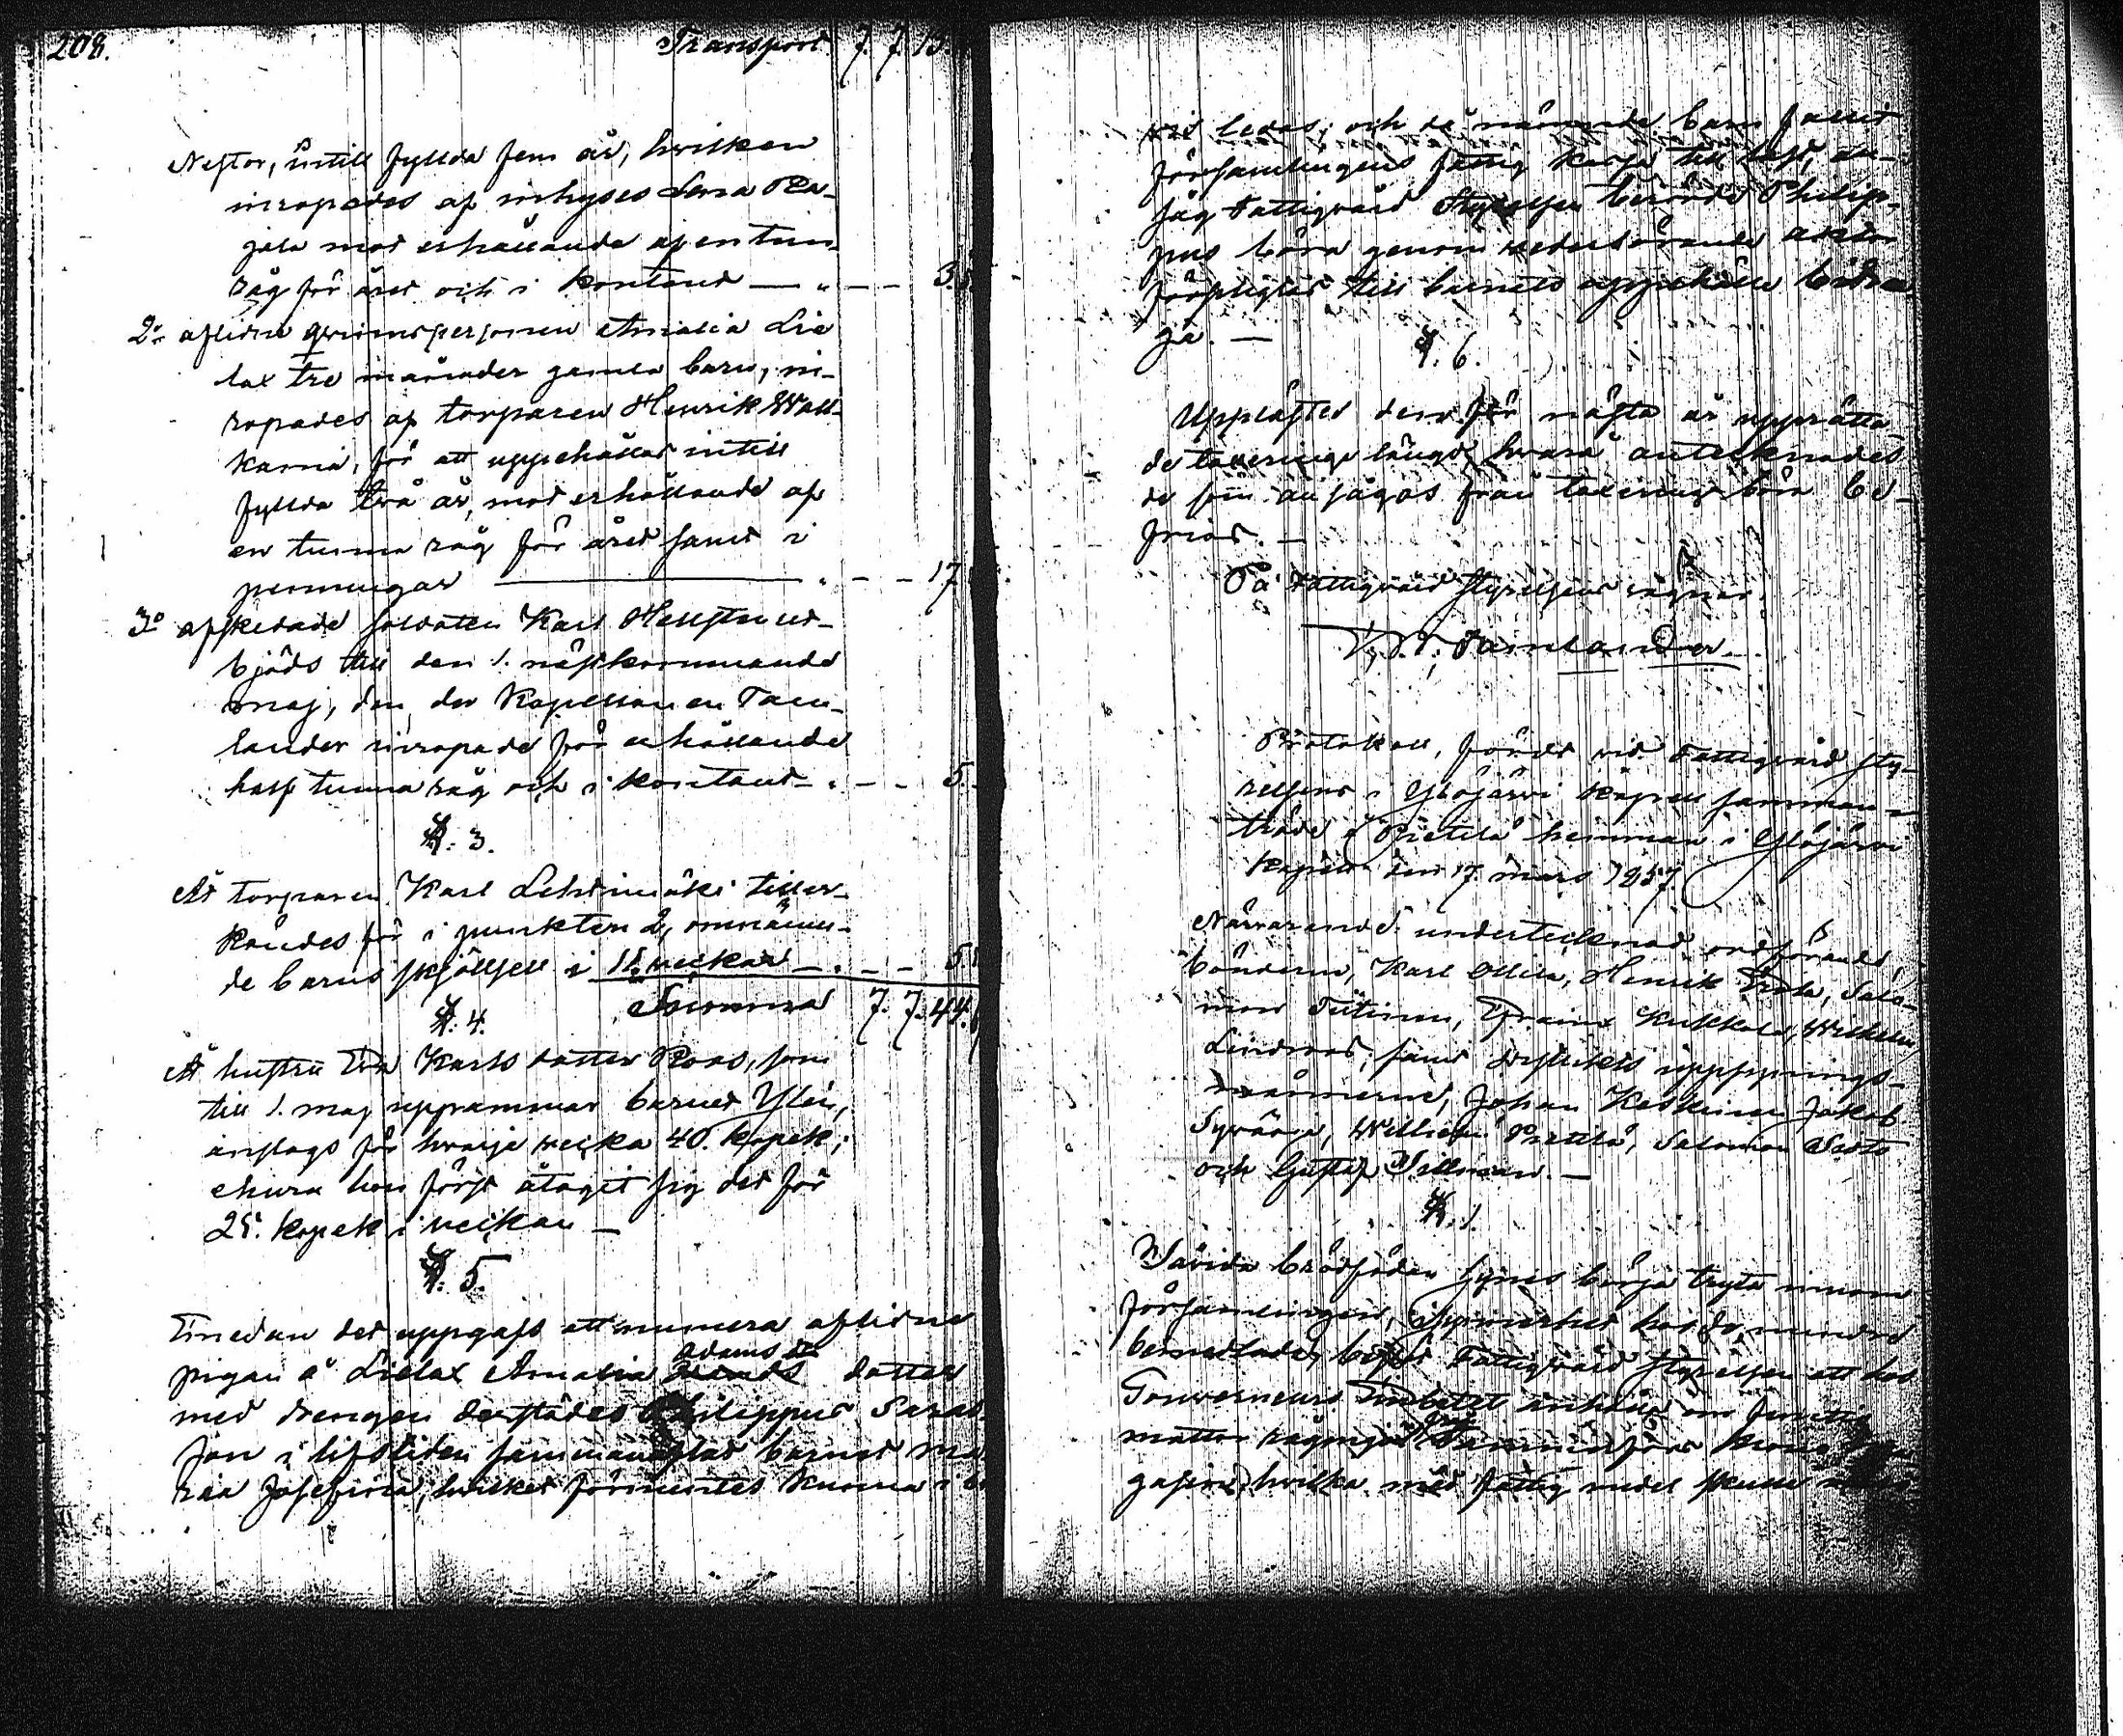 208.
Transport 7. 7. 13.
Nestor, intill fyllda fem år, hvilken
inropades af inhyses Lena
jala mot erhållande af en tun
råg för året och i kontant — " — — 3.
2:o aflidne qvinspersonen Amalia Lie
lax tre månader gamla barn, in-
ropades af torparen Henrik Wall
karna, för att uppehållas intill
fyllda två år, mot erhållande af
en tunna råg för året samt i
penningar — " — — 17
3:o afskedade soldaten Karl Hellsten ut-
bjöds till den 1. nästkommande
maj, den der Kapellanen Tam-
lander inropade för erhållande
half tunna råg och i kontant — " — — 5.
§. 3.
Åt torparen Karl Lehtimäki tiller-
kändes för i punkten 2, omnämn-
de barns skjöttsell i 11 veckor — . — — 5.
Summa 7. 7. 44.
§. 4.
Åt hustru Eva Karls dotter Roos, som
till 1. maj uppammar barnet Ylén,
anslogs för hvarje vecka 40. kopek;
ehuru hon först åtagit sig det för
25. kopek i veckan —
§. 5.
Emedan det uppgafs att numera aflidne
pigan å Lielax Amalia Adams dotter
med drengen derstädes Philippus
son i lifstiden sammanaflat barnet Ma
ria Josefina, hvilket förmentes kunna i
vis ledas; och då nämnde barn fallit
församlingens fattig kassa till last, an-
såg Fattigvård Styrelsen berörde Philip-
pus böra genom vederbörande aktor
förpligtas till barnets uppehälle bidra
ga. —
§. 6.
Upplästes den för nästa år upprätta
de taxerings längd, hvará antecknades
de som ansågos från taxering böra be-
frias. —
På Fattigvård styrelsens vägnar
Tamlander
Protokoll, fördt vid Fattigvård sty-
relsens i Ylöjärvi kapell samman-
träde å Pietilä hemman i Ylöjärvi
kapell den 17. mars 1857.
Närvarande undertecknad ordförande,
bönderne, Karl Ollila, Henrik Erola, Salo-
mon Tiitinen, Frans Kukkola, Wilhelm
Lindroos, samt distrikts uppsynings-
männerne, Johan Keskinen Jakob
Sywärja, Wilhelm Pietilä, Salomon
och Gustaf Tillman. —
§. 1.
Såvida brödfödan synes börja tryta inom
församlingen, synnerligt hos de mindre
bemedlade, beslöt Fattigvård styrelsen att hos
Gouverneurs Embetet anhålla om femtio
mattor rågmjöl från Tammerfors krono
gasin, hvilka med fattig medel skulle